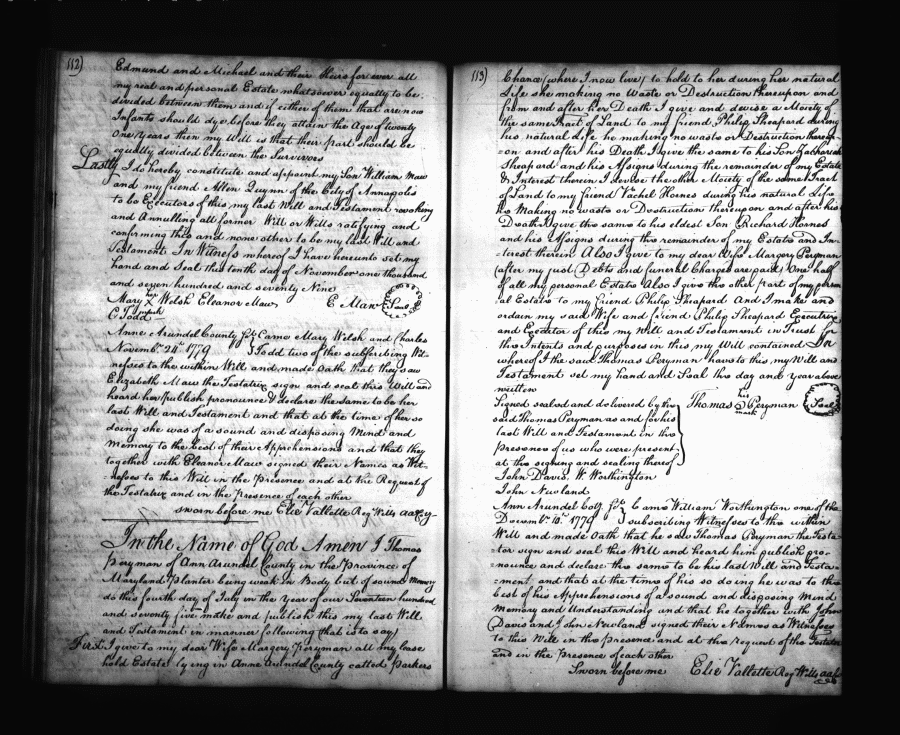 112)
Edmund and Michael and their heirs for ever all
my real and personal Estate whatsoever equally to be
divided between them and if either of them that are now
Infants should dye before they attain the Age of twenty
One years then my Will is that their part should be
equally divided between the Survivors
Lastly I do hereby constitute and appoint my Son William Maw
and my friend Allen Quynn of the City of Annapolis
to be Executors of this my last Will and Testament revoking
and Annulling all former Will or Wills ratifying and
confirming this and none other to be my last Will and
Testament In Witness whereof I have hereunto set my
hand and Seal this tenth day of November one thousand
and seven hundred and seventy Nine
Mary her X mark Welsh Eleanor Maw E Maw Seal
C Todd
Anne Arundel County Sst. Came Mary Welsh and Charles
Novembr. 24th 1779 Todd two of the subscribing Wit-
nesses to the within Will and made Oath that they saw
Elizabeth Maw the Testatrix sign and seal this Will and
heard her publish pronounce & declare the same to be her
last Will and Testament and that at the time of her so
doing she was of a sound and disposing Mind and
Memory to the best of their Apprehensions and that they
together with Eleanor Maw signed their Names as Wit-
nesses to this Will in the Presence and at the Request of
the Testatrix and in the Presence of each other
sworn before me Elie Vallette Regr. Wills aa Cy
In the Name of God Amen I Thomas
Peryman of Ann Arundel County in the Province of
Maryland Planter being weak in Body but of sound Memory
do this fourth day of July in the Year of our Seventeen hundred
and seventy five make and publish this my last Will
and Testament in manner following (that is to say)
First I give to my dear Wife Margery Peryman all my lease
hold Estate lying in Anne Arundel County called Parkers
113)
Chance (where I now live) to hold to her during her natural
Life she making no Waste or Destruction thereupon and
from and after her Death I give and devise a Moiety of
the same Tract of Land to my friend Philip Sheapard during
his natural Life he making no waste or Destruction thereup-
=on and after his Death I give the same to his Son Zachariah
Sheapard and his Assigns during the remainder of my Estate
& Interest therein I devise the other Moiety of the same Tract
of Land to my friend Vachel Hornes during his natural Life
he Making no waste or Destruction thereupon and after his
Death I give the same to his eldest Son Richard Hornes
and his Assigns during the remainder of my Estate and In-
terest therein Also I give to my dear Wife Margery Peryman
(after my just Debts and funeral Charges are paid) One half
of all my personal Estate Also I give the other part of my person
al Estate to my friend Philip Sheapard And I make and
ordain my said Wife and friend Philip Sheapard Executrix
and Executor of this my Will and Testament in Trust for
the Intents and purposes in this my Will contained In
whereof I the said Thomas Peryman have to this my Will and
Testament set my hand and Seal this day and year above
written
Signed sealed and delivered by the
said Thomas Peryman as and for his
last Will and Testament in the
Presence of us who were present
at the signing and sealing thereof
Thomas his mark Peryman Seal
John Davis, W. Worthington
John Newland
Ann Arundel Coty. Sst. Came William Worthington one of the
Decembr. 10th. 1779 subscribing Witnesses to the within
Will and made Oath that he saw Thomas Peryman the Testa-
tor sign and seal this Will and heard him publish pro-
nounce and declare the same to be his last Will and Testa-
=ment and that at the time of his so doing he was to the
best of his Apprehensions of a sound and disposing Mind
Memory and Understanding and that he together with John
Davis and John Newland signed their Names as Witnesses
to this Will in the presence and at the request of the Testator
and in the Presence of each other
Sworn before me Elie Vallette Regr. Wills aa Co